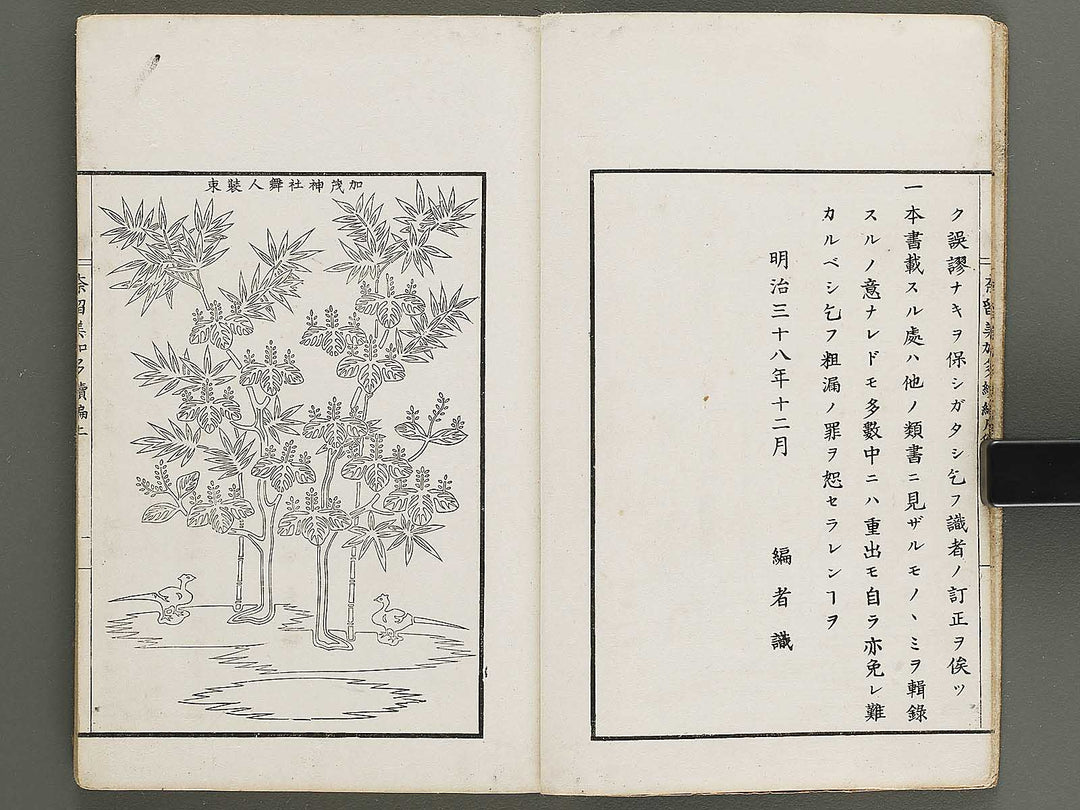 ク誤謬ナキヲ保シガタシ乞フ識者ノ訂正ヲ俟ツ
一本書載スル處ハ他ノ類書ニ見ザルモノヽミヲ輯錄
スルノ意ナレドモ多數中ニハ重出モ自ラ亦免レ難
カルベシ乞フ粗漏ノ罪ヲ恕セラレンヿヲ
明治三十八年十二月
編者識
加茂神社舞人裝束